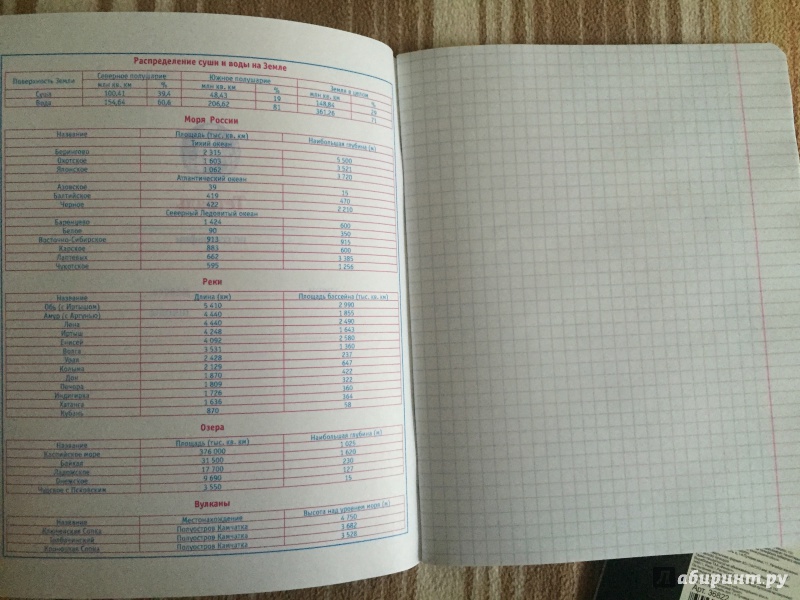 Распределение суши и воды на Земле
Поверхность Земли Северное полушарие Южное полушарие Земля в целом
млн кв. км % млн кв. км % млн кв. км %
Суша 100,41 39,4 48,43 19 148,84 29
Вода 154,64 60,6 206,62 81 361,26 71
Моря России
Название Площадь (тыс. кв. км) Наибольшая глубина (м)
Тихий океан
Берингово 2 315 5 500
Охотское 1 603 3 521
Японское 1 062 3 720
Атлантический океан
Азовское 39 15
Балтийское 419 470
Черное 422 2 210
Северный Ледовитый океан
Баренцево 1 424 600
Белое 90 350
Восточно-Сибирское 913 915
Карское 883 600
Лаптевых 662 3 385
Чукотское 595 1 256
Реки
Название Длина (км) Площадь бассейна (тыс. кв. км)
Обь (с Иртышом) 5 410 2 990
Амур (с Аргунью) 4 440 1 855
Лена 4 400 2 490
Иртыш 4 248 1 643
Енисей 4 092 2 580
Волга 3 531 1 360
Урал 2 428 237
Колыма 2 129 647
Дон 1 870 422
Печора 1 809 322
Индигирка 1 726 360
Хатанга 1 636 364
Кубань 870 58
Озера
Название Площадь (тыс. кв. км) Наибольшая глубина (м)
Каспийское море 376 000 1 025
Байкал 31 500 1 620
Ладожское 17 700 230
Онежское 9 690 127
Чудское с Псковским 3 550 15
Вулканы
Название Местонахождение Высота над уровнем моря (м)
Ключевская Сопка Полуостров Камчатка 4 750
Полуостров Камчатка 3 682
Сопка Полуостров Камчатка 3 528
Лабиринт.ру